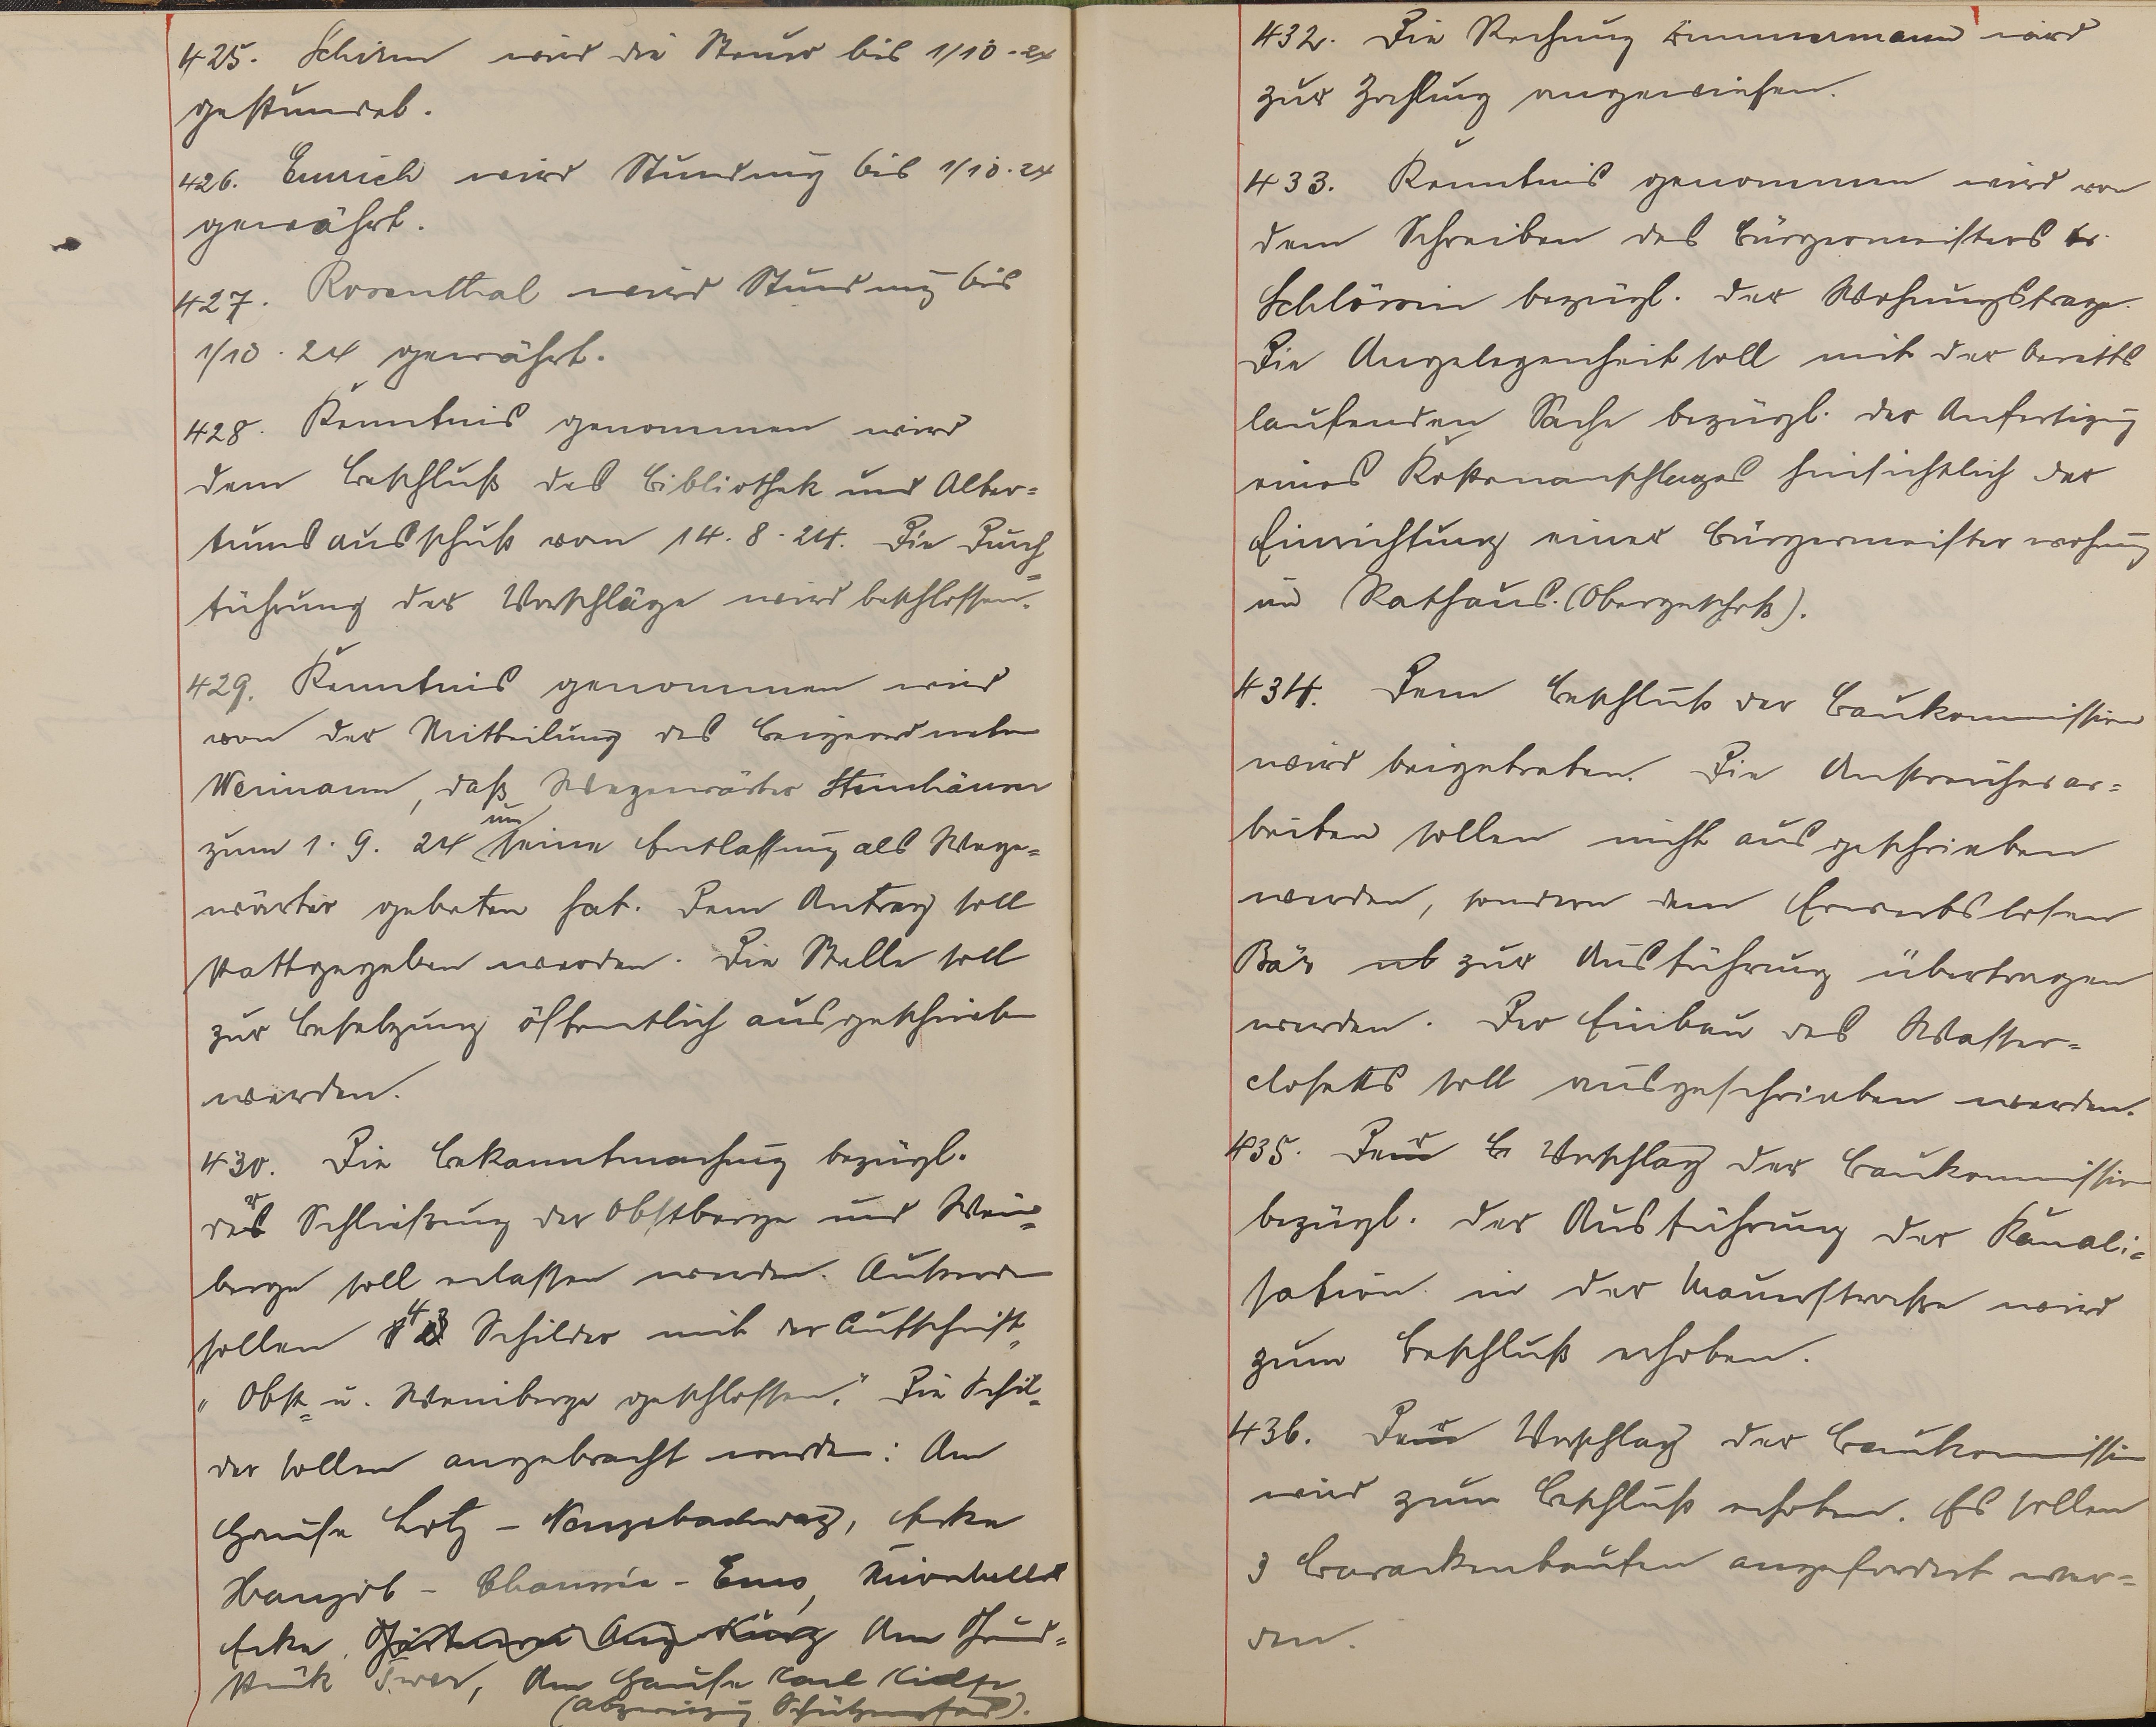 425. Schirm wird die Steuer bis 1/10-24
gestundet.
426. Emrich wird Stundung bis 1/10.24
gewährt.
427. Rosenthal wird Stundung bis
1/10.24 gewährt.
428. Kenntnis genommen wird
dem Beschluß des Bibliothek und Alter=
tumsausschuß vom 14.8.24. Die Durch=
führung der Vorschläge wird beschlossen.
429. Kenntnis genommen wird
von der Mitteilung des Beigeordneten
Weimann, daß Wegewärter Steinhäuser
zum 1.9.24 um seine Entlassung als Wege=
wärter gebeten hat. Dem Antrag soll
stattgegeben werden. Die Stelle soll
zur Besetzung öffentlich ausgeschrieben
werden.
430. Die Bekanntmachung bezügl.
der Schließung der Obstberge und Wein=
berge soll erlassen werden. Außerdem
sollen 4 Schilder mit der Aufschrift
"Obst= u. Weinberge geschlossen." Die Schil=
der sollen angebracht werden: Am
Hause Lotz - , Ecke
- Chaussée - Ems,
Ecke Gärtnerei Aug. Kurz Am Grund=
stück , Am Hause Karl
(Abzweigung Schützenpfad).
432. Die Rechnung Zimmermann wird
zur Zahlung angewiesen.
433. Kenntnis genommen wird von
dem Schreiben des Bürgermeisters
bezügl. der Wohnungsfrage.
Die Angelegenheit soll mit der bereits
laufenden Sache bezügl. der Anfertigung
eines Kostenanschlages hinsichtlich der
Einrichtung einer Bürgermeisterwohnung
im Rathaus. (Obergeschoß).
434. Dem Beschluß der Baukommission
wird beigetreten. Die Anstreicherar=
beiten sollen nicht ausgeschrieben
werden, sondern dem Erwerbslosen
Bär zur Ausführung übertragen
werden. Der Einbau des Wasser=
closetts soll ausgeschrieben werden.
435. Der Vorschlag der Baukommission
bezügl. der Ausführung der Kanali=
sation in der Mauerstraße wird
zum Beschluß erhoben.
436. Der Vorschlag der Baukommission
wird zum Beschluß erhoben. Es sollen
3 Barackenbauten angefordert wer=
den.